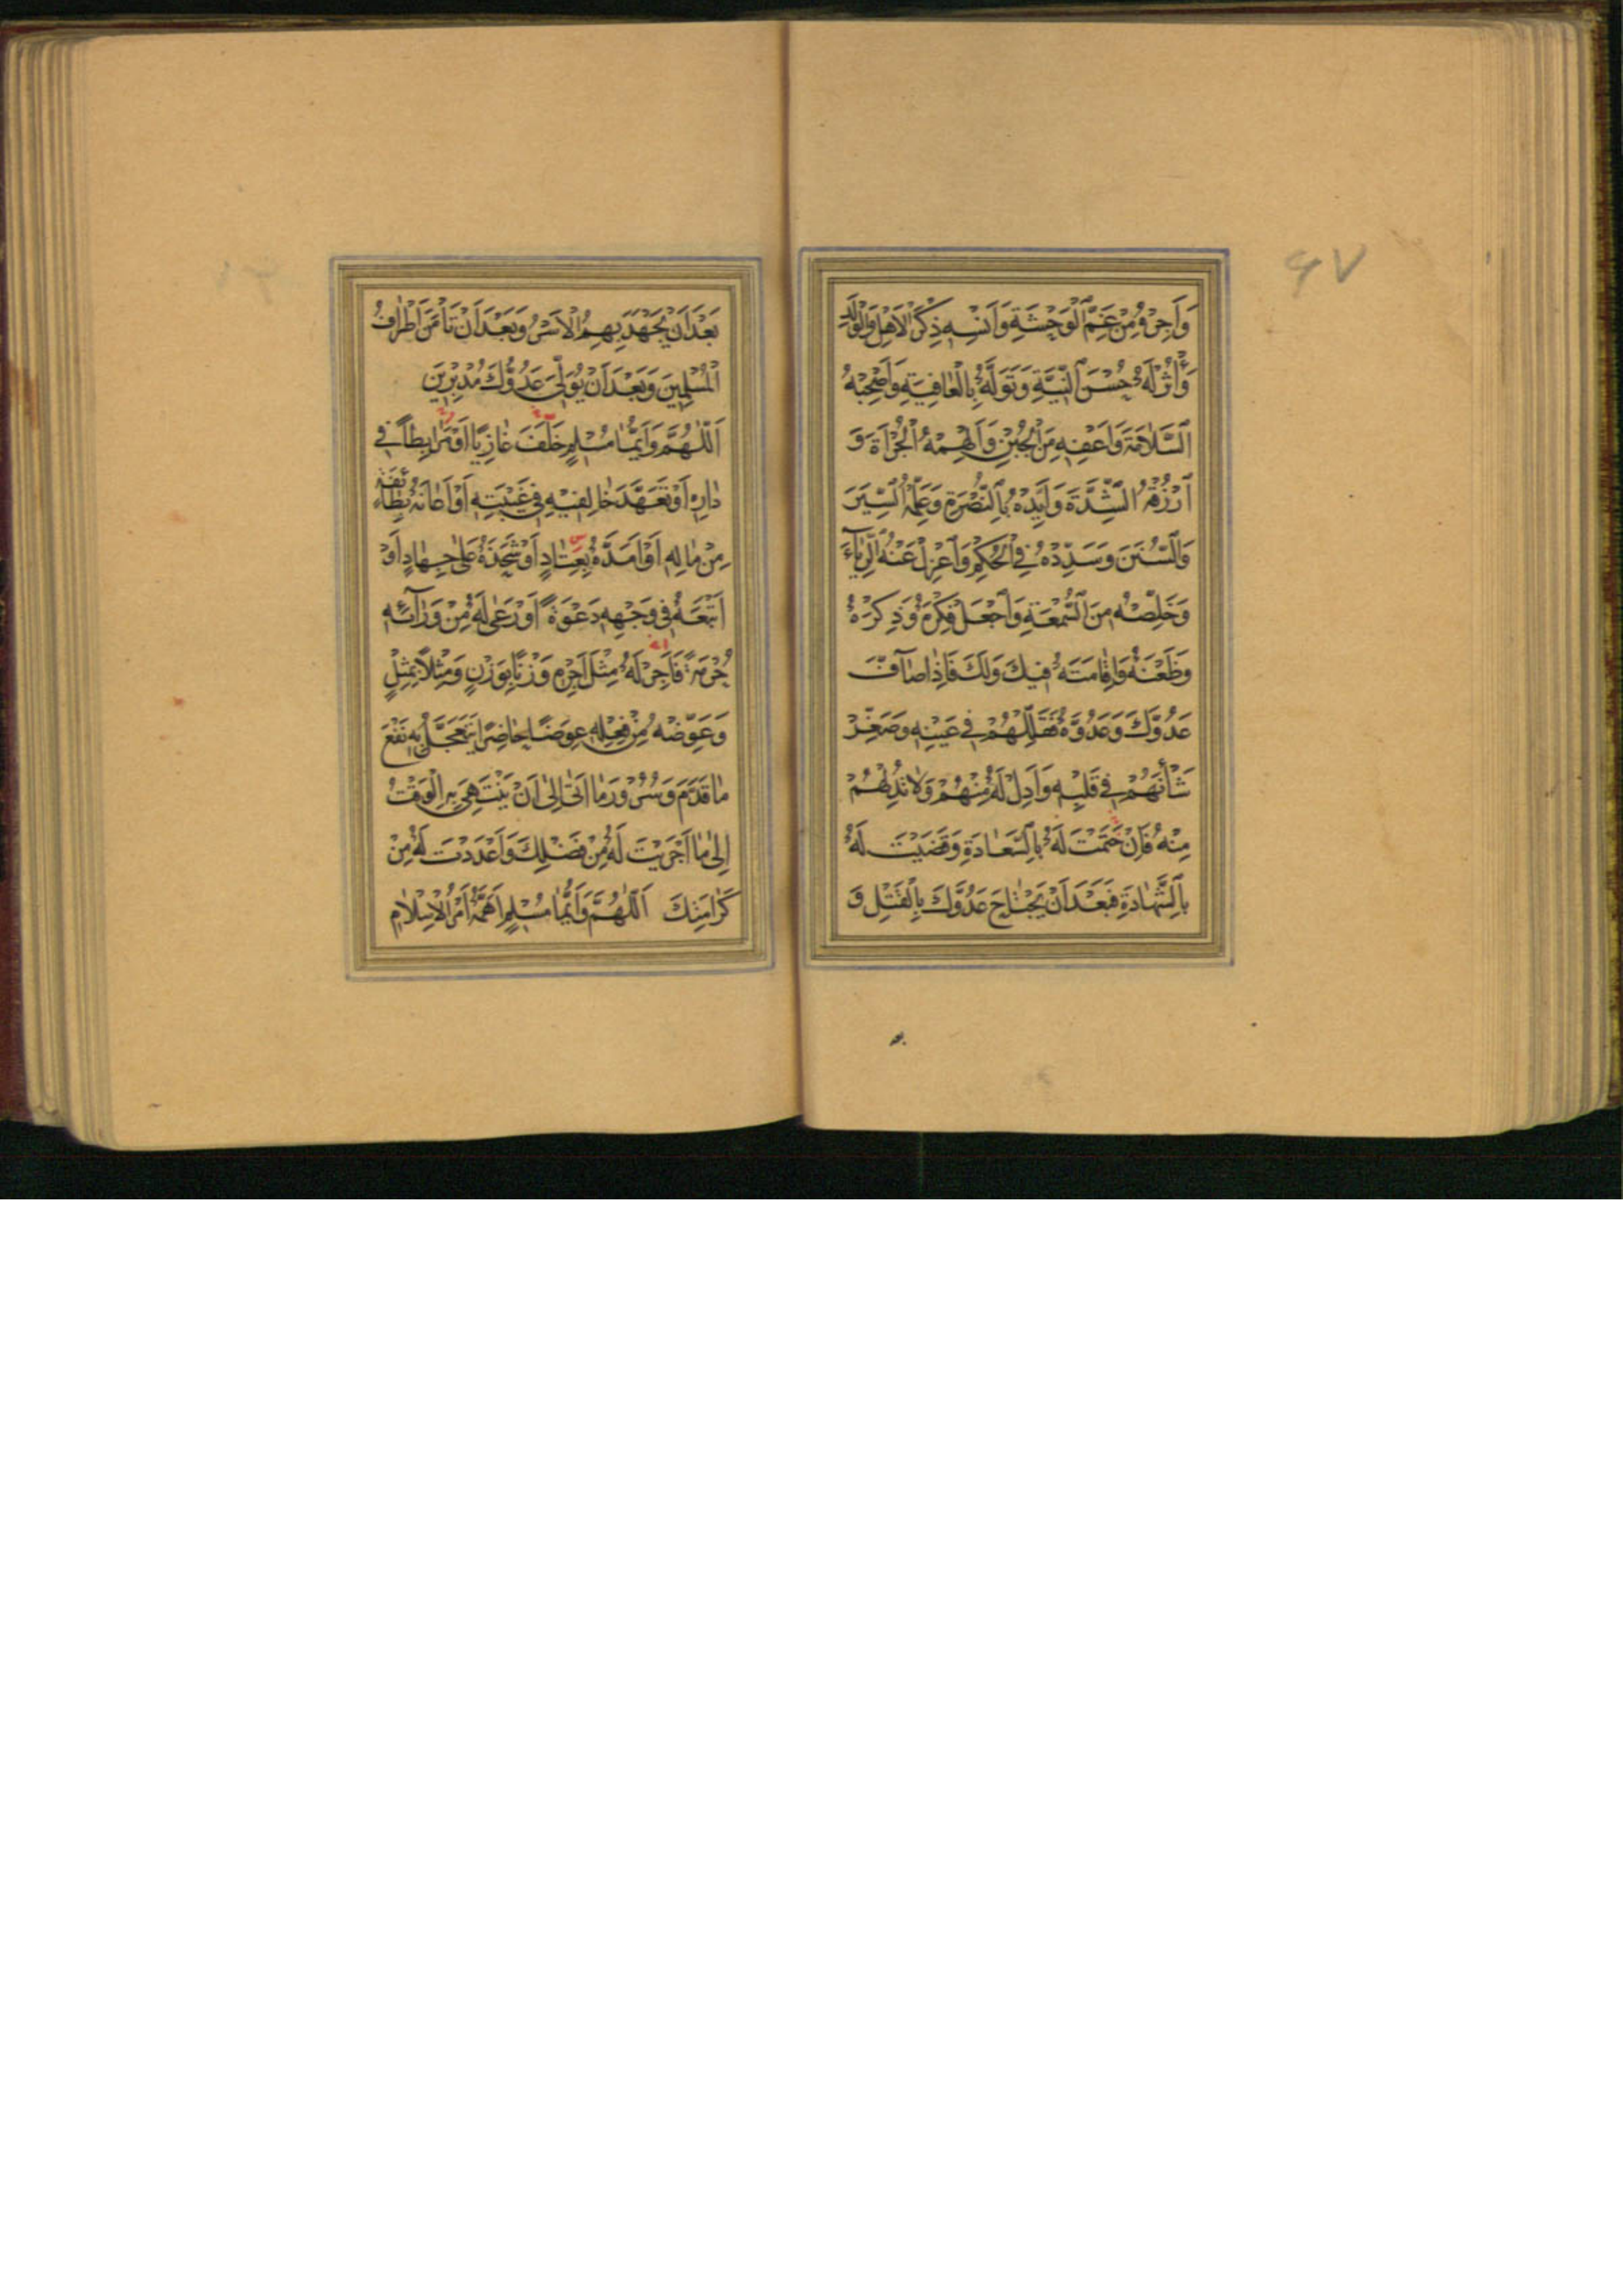 ۶۷
وَاَجِرْهُ مِنْ غَمِّ الْوَحْشَةِ وَاَنْسِهِ ذِكْرَ الْاَهْلِ وَالْوَلَدِ
وَأْثُرْ لَهُ حُسْنَ النِّيَّةِ وَتَوَلَّهُ بِالْعٰافِيَةِ وَاَصْحِبْهُ
السَّلٰامَةَ وَاَعْفِهِ مِنَ الْجُبْنِ وَاَلْهِمْهُ الْجُرْاَةَ وَ
ارْزُقْهُ الشِّدَّةَ وَاَيِّدْهُ بِالنُّصْرَةِ وَعَلِّمْهُ السِّيَرَ
وَالسُّنَنَ وَسَدِّدْهُ فِي الْحُكْمِ وَاعْزِلْ عَنْهُ الرِّيٰآءَ
وَخَلِّصْهُ مِنَ السُّمْعَةِ وَاجْعَلْ فِكْرَهُ وَذِكْرَهُ
وَظَعْنَهُ وَاِقٰامَتَهُ فِيكَ وَلَكَ فَاِذٰا صٰآفَّ
عَدُوَّكَ وَعَدُوَّهُ فَقَلِّلْهُمْ فِي عَيْنِهِ وَصَغِّرْ
شَأْنَهُمْ فِي قَلْبِهِ وَاَدِلْ لَهُ مِنْهُمْ وَلٰا تُدِلْهُمْ
مِنْهُ فَاِنْ خَتَمْتَ لَهُ بِالسَّعٰادَةِ وَقَضَيْتَ لَهُ
بِالشَّهٰادَةِ فَبَعْدَ اَنْ يَجْتٰاحَ عَدُوَّكَ بِالْقَتْلِ وَ
بَعْدَ اَنْ يَجْهَدَ بِهِمُ الْاَسْرُ وَبَعْدَ اَنْ تَأْمَنَ اَطْرٰافُ
الْمُسْلِمِينَ وَبَعْدَ اَنْ يُوَلِّيَ عَدُوُّكَ مُدْبِرِينَ
اَللّٰهُمَّ وَاَيُّمٰا مُسْلِمٍ خَلَفَ غٰازِيًا اَوْ مُرٰابِطًا فِي
دٰارِهِ اَوْ تَعَهَّدَ خٰالِفِيهِ فِي غَيْبَتِهِ اَوْ اَعٰانَهُ بِطٰائِفَةٍ
مِنْ مٰالِهِ اَوْ اَمَدَّهُ بِعَتٰادٍ اَوْ شَحَذَهُ عَلٰى جِهٰادٍ اَوْ
اَتْبَعَهُ فِي وَجْهِهِ دَعْوَةً اَوْ رَعٰى لَهُ مِنْ وَرٰآئِهِ
حُرْمَةً فَاَجِرْ لَهُ مِثْلَ اَجْرِهِ وَزْنًا بِوَزْنٍ وَمِثْلًا بِمِثْلٍ
وَعَوِّضْهُ مِنْ فِعْلِهِ عِوَضًا حٰاضِرًا يَتَعَجَّلُ بِهِ نَفْعَ
مٰا قَدَّمَ وَسُرُورَ مٰا اَتٰى اِلٰى اَنْ يَنْتَهِيَ بِهِ الْوَقْتُ
اِلٰى مٰا اَجْرَيْتَ لَهُ مِنْ فَضْلِكَ وَاَعْدَدْتَ لَهُ مِنْ
كَرٰامَتِكَ اَللّٰهُمَّ وَاَيُّمٰا مُسْلِمٍ اَهَمَّهُ اَمْرُ الْاِسْلٰامِ